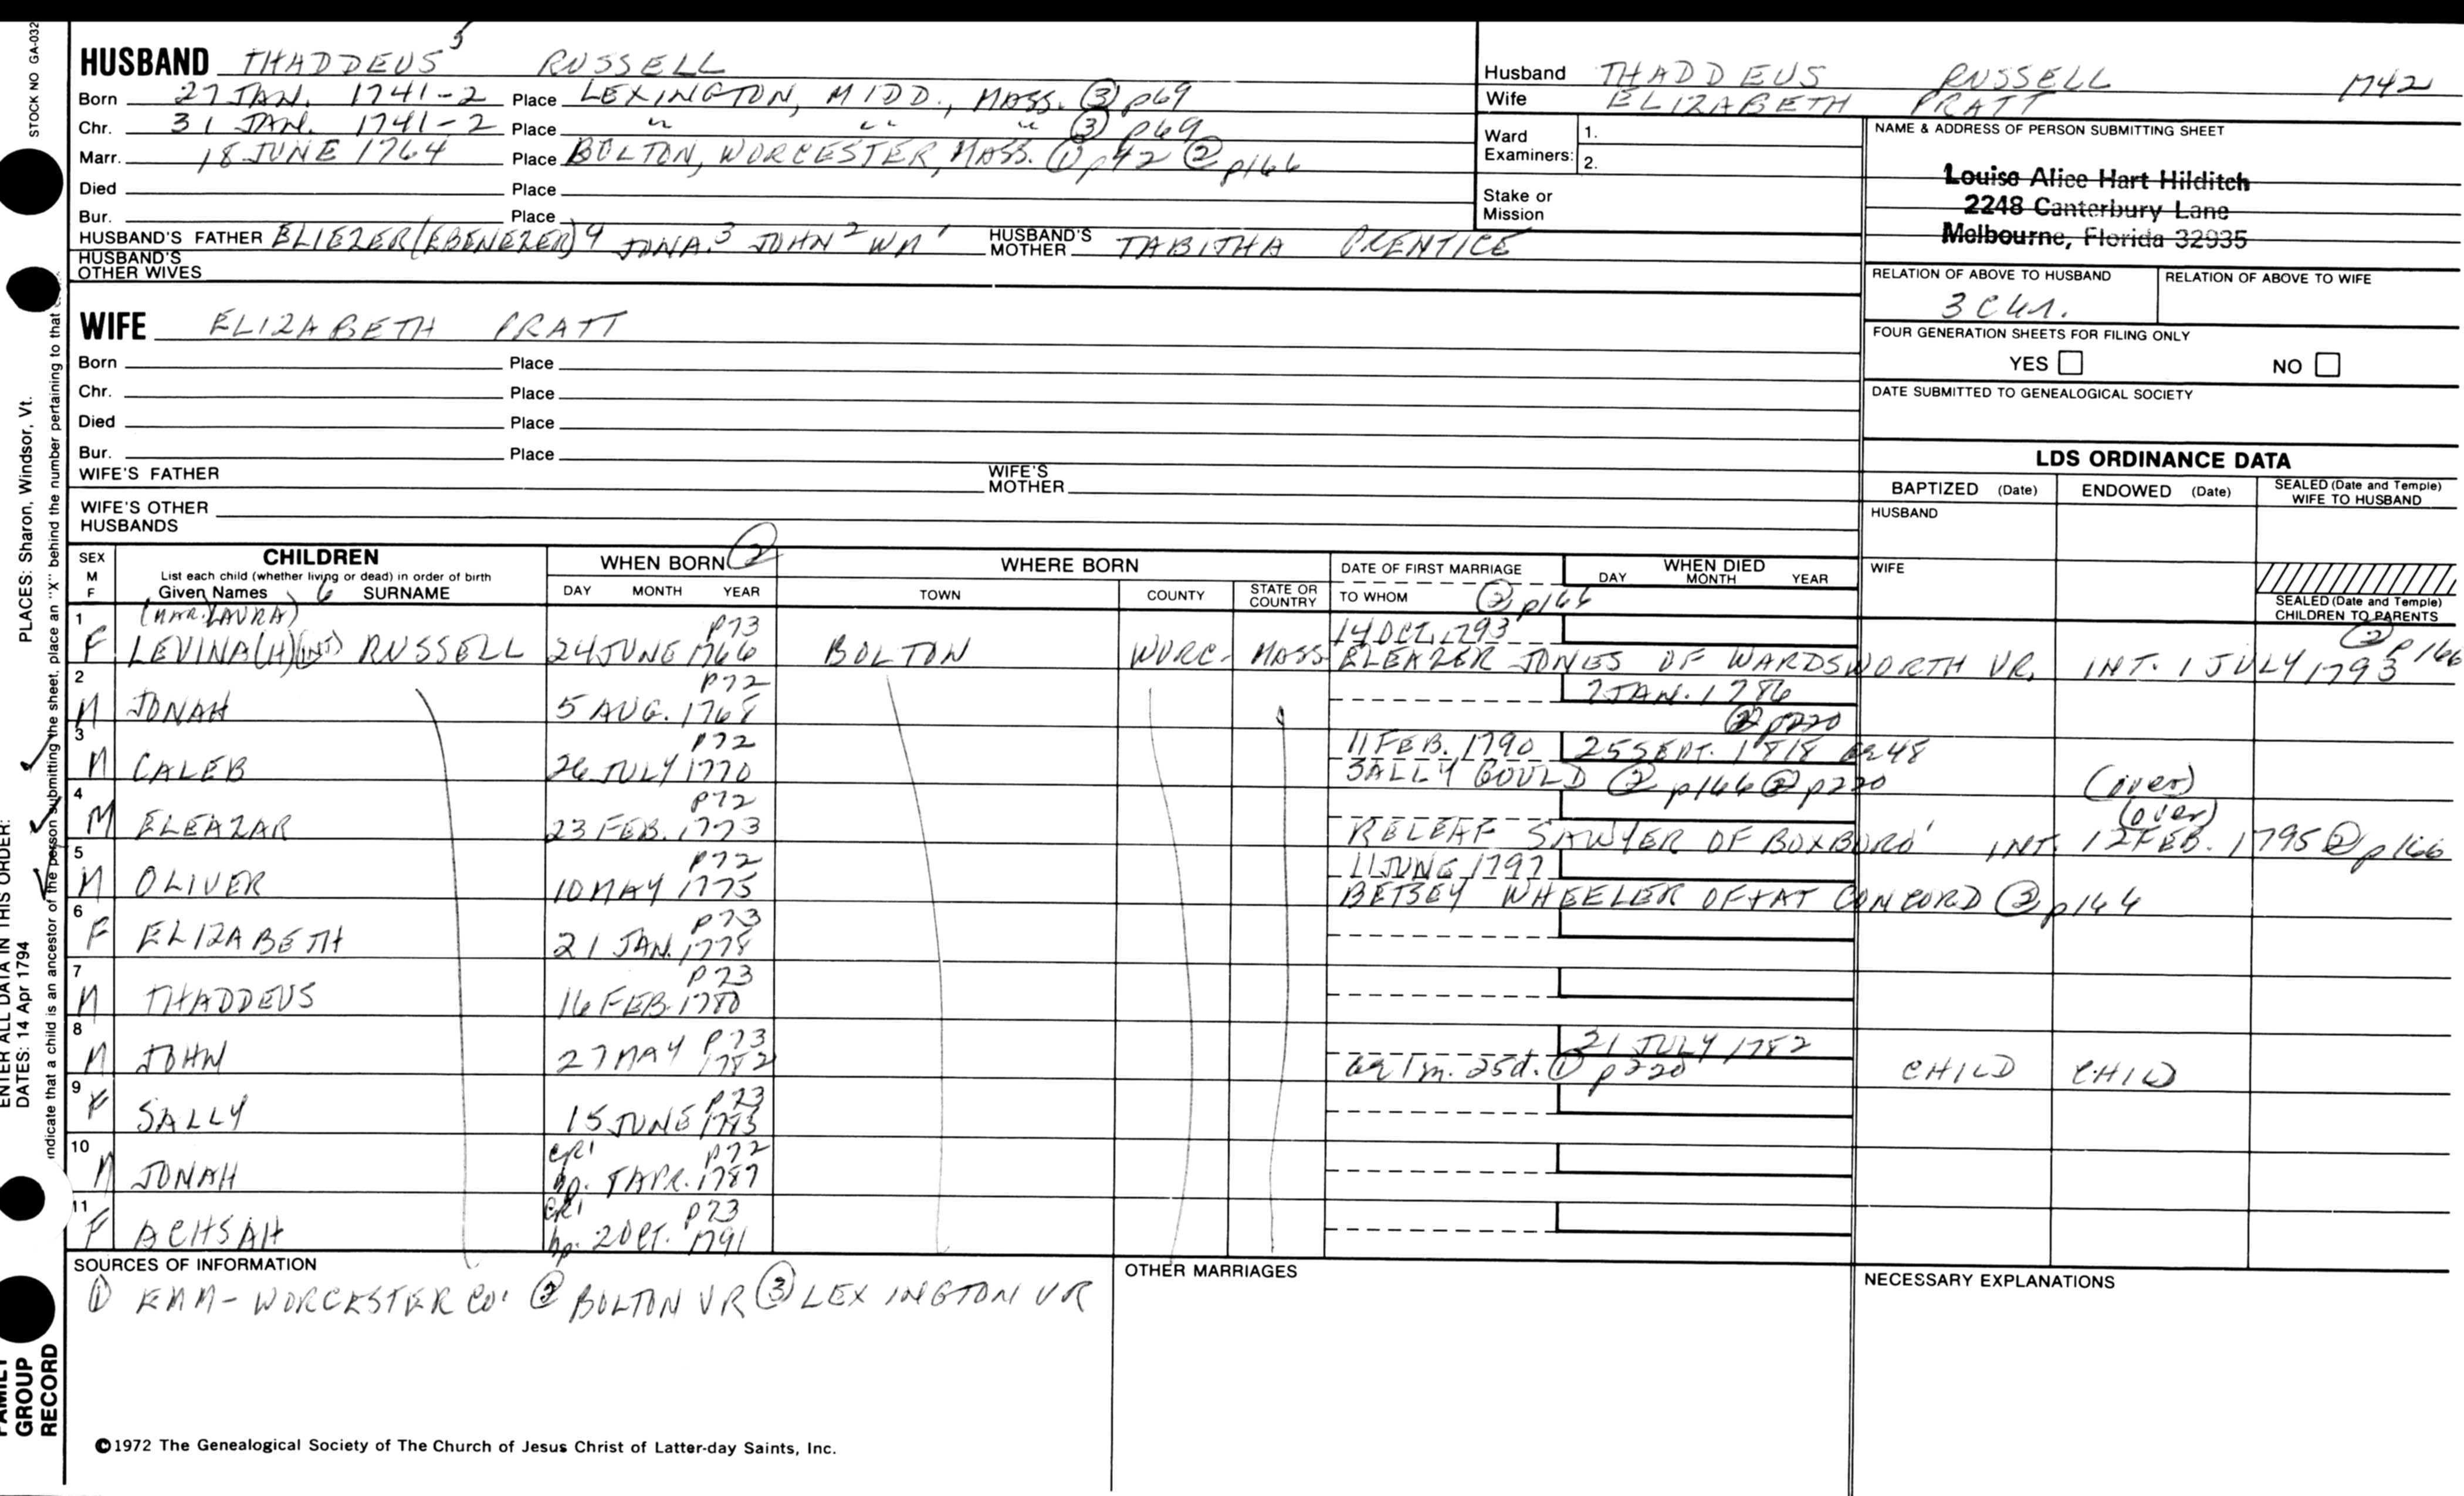 HUSBAND THADDEUS 5 RUSSELL
Born 27 JAN. 1741-2 Place LEXINGTON, MIDD., MASS. ③ p69
Chr. 31 JAN. 1741-2 Place " " " ③ p69
Marr. 18 JUNE 1764 Place BOLTON, WORCESTER, MASS. ① p42 ② p166
Died Place
Bur. Place
HUSBAND'S FATHER ELIEZER (EBENEZER) 4 JONA. 3 JOHN 2 WM 1 HUSBAND'S MOTHER TABITHA PRENTICE
HUSBAND'S OTHER WIVES
Husband THADDEUS RUSSELL 1742
Wife ELIZABETH PRATT
Ward Examiners: 1.
2.
Stake or Mission
NAME & ADDRESS OF PERSON SUBMITTING SHEET
Louise Alice Hart Hilditch
2248 Canterbury Lane
Melbourne, Florida 32935
RELATION OF ABOVE TO HUSBAND RELATION OF ABOVE TO WIFE
FOUR GENERATION SHEETS FOR FILING ONLY
YES NO
DATE SUBMITTED TO GENEALOGICAL SOCIETY
WIFE ELIZABETH PRATT
Born Place
Chr. Place
Died Place
Bur. Place
WIFE'S FATHER WIFE'S MOTHER
WIFE'S OTHER HUSBANDS
LDS ORDINANCE DATA
BAPTIZED (Date) ENDOWED (Date) SEALED (Date and Temple) WIFE TO HUSBAND
HUSBAND
WIFE
SEALED (Date and Temple) CHILDREN TO PARENTS
SEX M F CHILDREN
List each child (whether living or dead) in order of birth
Given Names 6 SURNAME
WHEN BORN ②
DAY MONTH YEAR
WHERE BORN
TOWN COUNTY STATE OR COUNTRY
DATE OF FIRST MARRIAGE
TO WHOM ② p166
WHEN DIED
DAY MONTH YEAR
1 (MAR. LAURA) p73 14 OCT. 1793 ② p166
F LEVINA(H) (INT) RUSSELL 24 JUNE 1766 BOLTON WORC- MASS ELEAZER JONES OF WARDSWORTH VR, INT. 1 JULY 1793
2 p72 7 JAN. 1786
M JONAH 5 AUG. 1768 ② p220
3 p72 11 FEB. 1790 25 SEPT. 1818 ae 48
M CALEB 26 JULY 1770 SALLY GOULD ② p166 ② p220 (over)
4 p72 (over)
M ELEAZAR 23 FEB. 1773 RELEAF SAWYER OF BOXBORO' INT. 12 FEB. 1795 ② p166
5 p72 11 JUNE 1797
M OLIVER 10 MAY 1775 BETSEY WHEELER OF + AT CONCORD ② p166
6 p73
F ELIZABETH 21 JAN. 1778
7 p73
M THADDEUS 16 FEB. 1780
8 p73 21 JULY 1782
M JOHN 27 MAY 1782 ae 1m. 25d. ① p220 CHILD CHILD
9 p73
F SALLY 15 JUNE 1783
10 CR1 p72
M JONAH bp. 8 APR. 1787
11 CR1 p73
F ACHSAH bp. 2 OCT. 1791
SOURCES OF INFORMATION
① EMM - WORCESTER CO. ② BOLTON VR ③ LEXINGTON VR
OTHER MARRIAGES
NECESSARY EXPLANATIONS
©1972 The Genealogical Society of The Church of Jesus Christ of Latter-day Saints, Inc.
STOCK NO GA-032
PLACES: Sharon, Windsor, Vt.
indicate that a child is an ancestor of the person submitting the sheet, place an "X" behind the number pertaining to that
ENTER ALL DATA IN THIS ORDER:
DATES: 14 Apr 1794
FAMILY GROUP RECORD